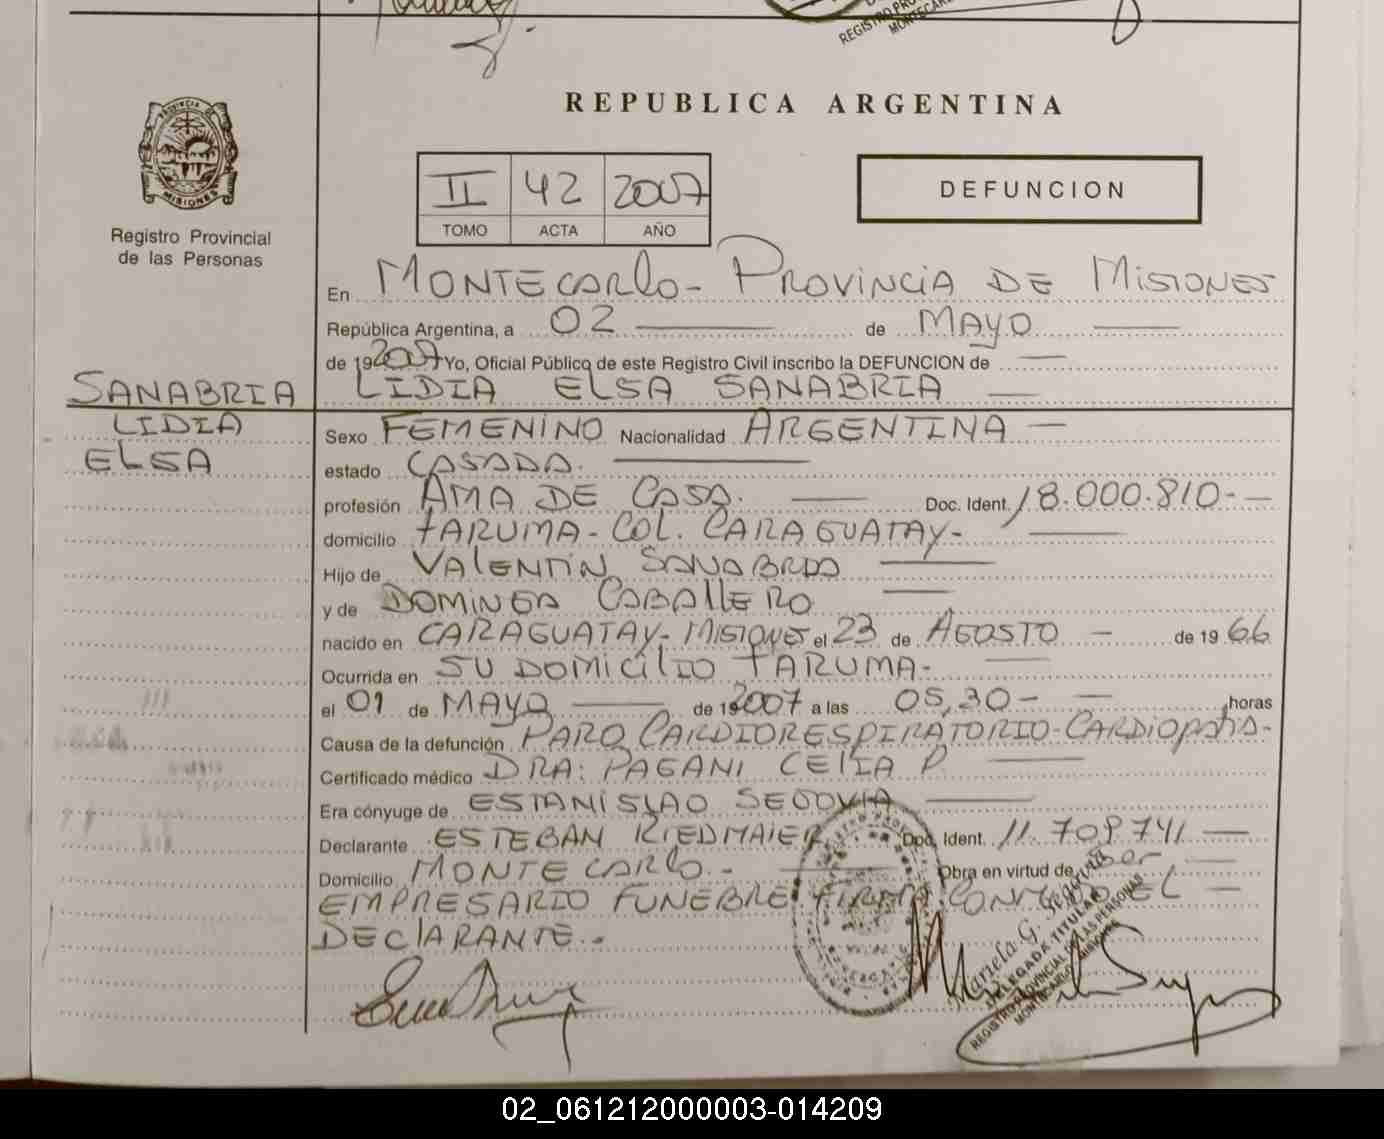 REGISTRO PRO
MONTECAR
REPUBLICA ARGENTINA
PROVINCIA DE
MISIONES
Registro Provincial
de las Personas
II 42 2007
TOMO ACTA AÑO
DEFUNCION
En MONTECARLO - PROVINCIA DE MISIONES
República Argentina, a 02 de MAYO
de 19 2007 Yo, Oficial Público de este Registro Civil inscribo la DEFUNCION de
SANABRIA
LIDIA
ELSA
LIDIA ELSA SANABRIA
Sexo FEMENINO Nacionalidad ARGENTINA
estado CASADA.
profesión AMA DE CASA. Doc. Ident. 18.000.810.-
domicilio TARUMA - COL. CARAGUATAY-
Hijo de VALENTIN SANABRIA
y de DOMINGA CABALLERO
nacido en CARAGUATAY - MISIONES el 23 de AGOSTO de 19 66
Ocurrida en SU DOMICILIO TARUMA-
el 01 de MAYO de 19 2007 a las 05,30 horas
Causa de la defunción PARO CARDIORESPIRATORIO-CARDIOPATIA-
Certificado médico DRA: PAGANI CELIA P.
Era cónyuge de ESTANISLAO SEGOVIA
Declarante ESTEBAN RIEDMAIER Doc. Ident. 11.709.741
Domicilio MONTECARLO.- Obra en virtud de ser
EMPRESARIO FUNEBRE FIRMA CONMIGO EL
DECLARANTE.-
Mariela G. Segovia
DELEGADA TITULAR
REGISTRO PROVINCIAL DE LAS PERSONAS
MONTECARLO MISIONES
02_061212000003-014209